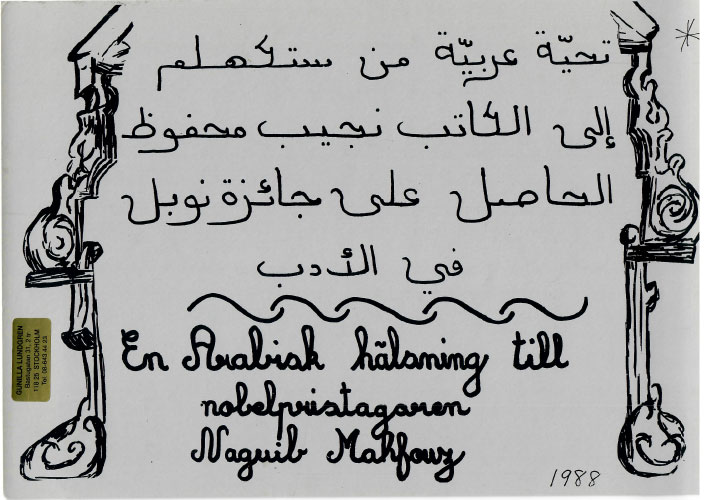 تحيّة عربيّة من ستكهلم
إلى الكاتب نجيب محفوظ
الحاصل على جائزة نوبل
في الأدب
En Arabisk hälsning till
nobelpristagaren
Naguib Mahfouz
1988
GUNILLA LUNDGREN
Bastugatan 31, 2 tr
118 25 STOCKHOLM
Tel. 08-643 44 23